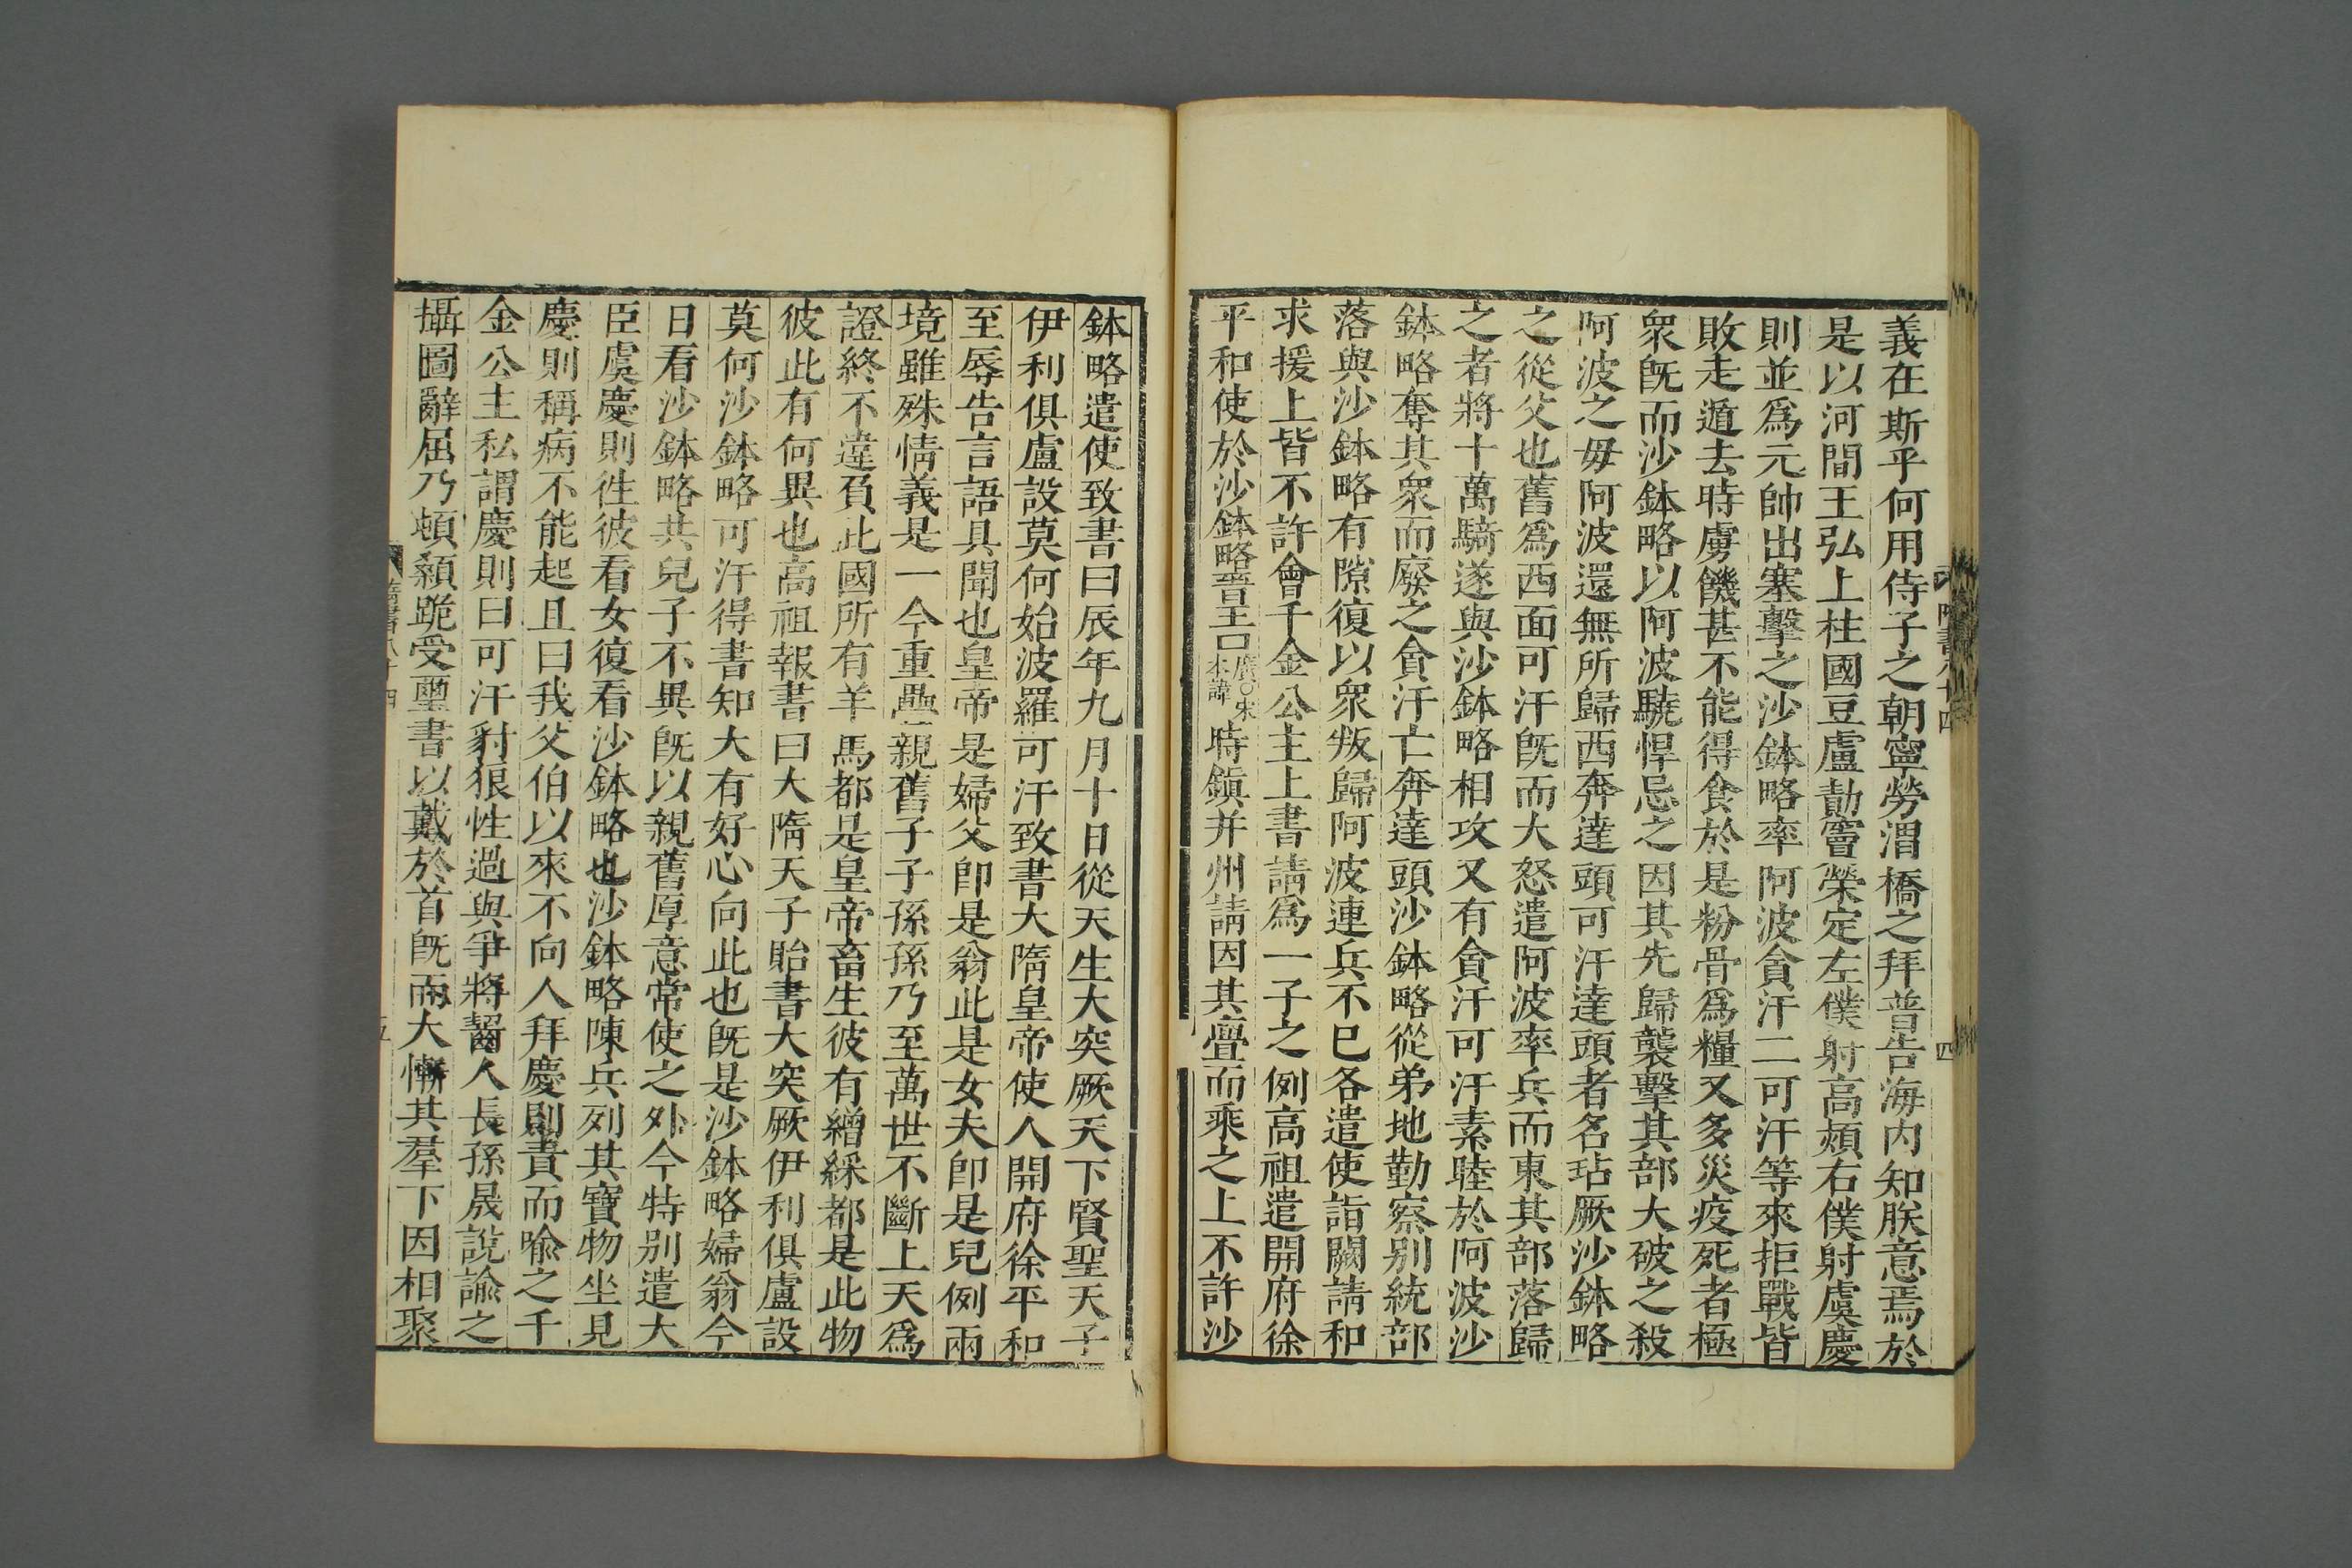 義在斯乎何用侍子之朝寧勞渭橋之拜普告海内知朕意焉於
是以河間王弘上柱國豆盧勣竇榮定左僕射高熲右僕射虞慶
則並爲元帥出塞擊之沙鉢略率阿波貪汗二可汗等來拒戰皆
敗走遁去時虜饑甚不能得食於是粉骨爲糧又多災疫死者極
衆旣而沙鉢略以阿波驍悍忌之因其先歸襲擊其部大破之殺
阿波之毋阿波還無所歸西奔達頭可汗達頭者名玷厥沙鉢略
之從父也舊爲西面可汗旣而大怒遣阿波率兵而東其部落歸
之者將十萬騎遂與沙鉢略相攻又有貪汗可汗素睦於阿波沙
鉢略奪其衆而廢之貪汗亡奔達頭沙鉢略從弟地勤察別統部
落與沙鉢略有隙復以衆叛歸阿波連兵不已各遣使詣闕請和
求援上皆不許會千金公主上書請爲一子之例高祖遣開府徐
平和使於沙鉢略晉王口廣○宋本諱時鎭并州請因其舋而乘之上不許沙
隋書八十四
四
鉢略遣使致書曰辰年九月十日從天生大突厥天下賢聖天子
伊利俱盧設莫何始波羅可汗致書大隋皇帝使人開府徐平和
至辱告言語具聞也皇帝是婦父卽是翁此是女夫卽是兒例兩
境雖殊情義是一今重疊親舊子子孫孫乃至萬世不斷上天爲
證終不違負此國所有羊馬都是皇帝畜生彼有繒綵都是此物
彼此有何異也高祖報書曰大隋天子貽書大突厥伊利俱盧設
莫何沙鉢略可汗得書知大有好心向此也旣是沙鉢略婦翁今
日看沙鉢略共兒子不異旣以親舊厚意常使之外今特別遣大
臣虞慶則徃彼看女復看沙鉢略也沙鉢略陳兵列其寶物坐見
慶則稱病不能起且曰我父伯以來不向人拜慶則責而喻之千
金公主私謂慶則曰可汗豺狼性過與爭將齧人長孫晟說諭之
攝圖辭屈乃頓顙跪受璽書以戴於首旣而大慚其羣下因相聚
隋書八十四
五